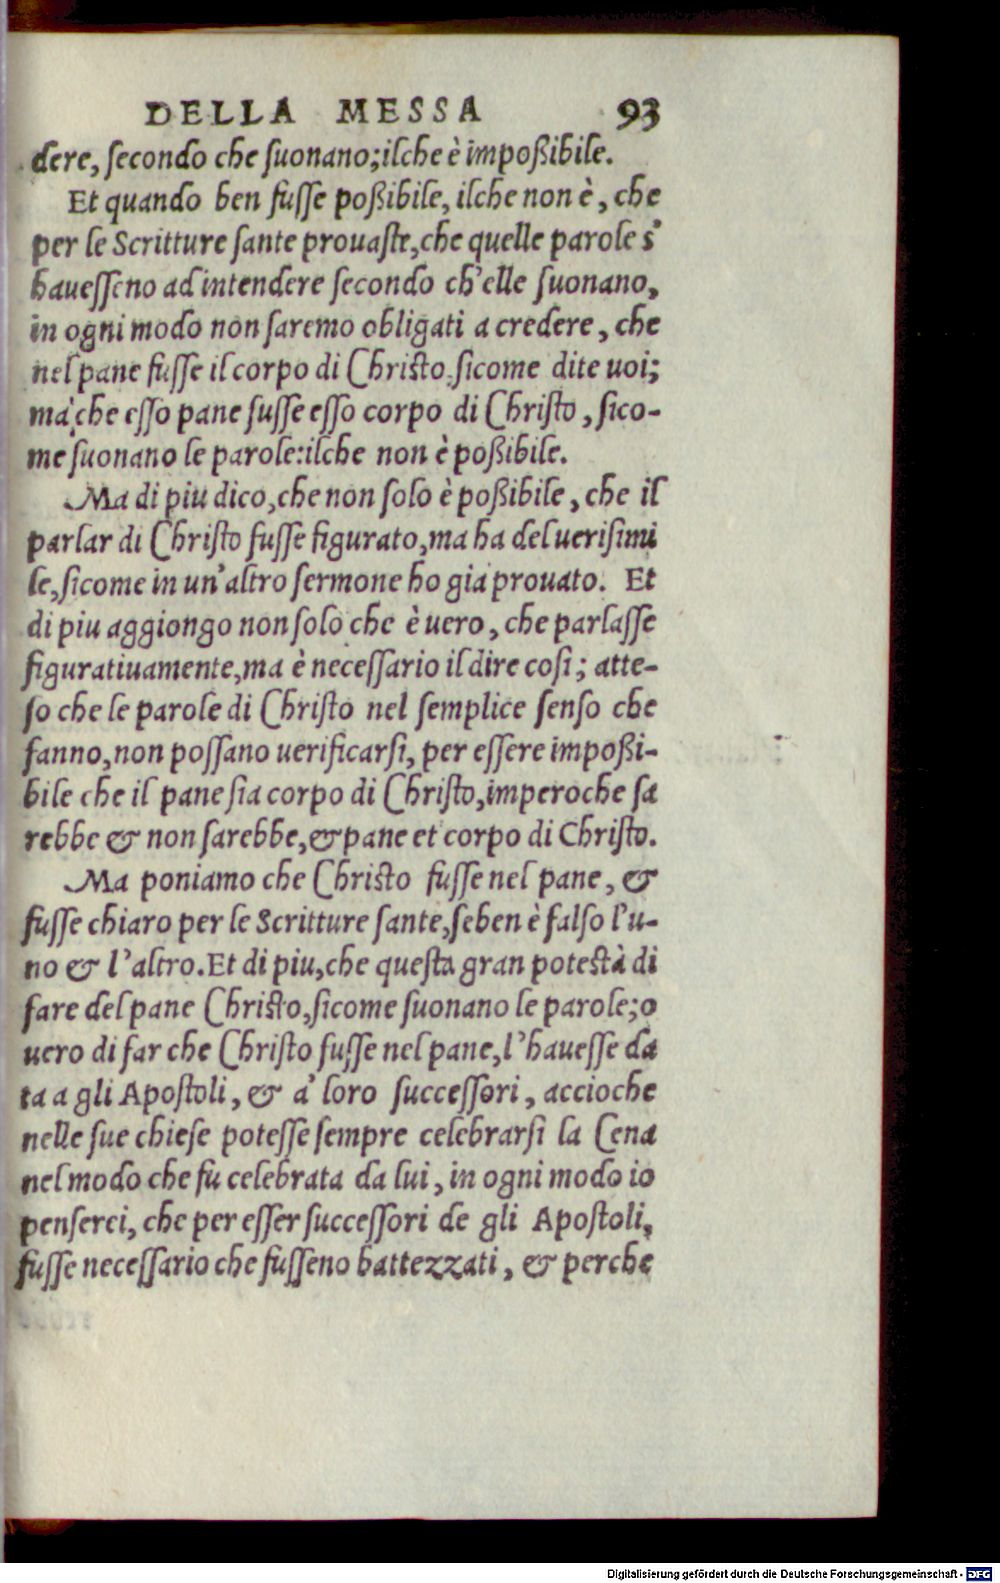 DELLA MESSA 93
dere, secondo che suonano; ilche è impoßibile.
Et quando ben fusse poßibile, ilche non è, che
per le Scritture sante provaste, che quelle parole s'
havesseno ad intendere secondo ch'elle suonano,
in ogni modo non saremo obligati a credere, che
nel pane fusse il corpo di Christo sicome dite uoi;
ma che esso pane fusse esso corpo di Christo, sico-
me suonano le parole: ilche non è poßibile.
Ma di piu dico, che non solo è poßibile, che il
parlar di Christo fusse figurato, ma ha del uerisimi
le, sicome in un'altro sermone ho gia prouato. Et
di piu aggiongo non solo che è uero, che parlasse
figurativamente, ma è necessario il dire cosi; atte-
so che le parole di Christo nel semplice senso che
fanno, non possano uerificarsi, per essere impoßi-
bile che il pane sia corpo di Christo, imperoche sa
rebbe & non sarebbe, & pane et corpo di Christo.
Ma poniamo che Christo fusse nel pane, &
fusse chiaro per le Scritture sante, seben è falso l'u-
no & l'altro. Et di piu, che questa gran potestà di
fare del pane Christo, sicome suonano le parole; o
uero di far che Christo fusse nel pane, l'hauesse da
ta a gli Apostoli, & a' loro successori, accioche
nelle sue chiese potesse sempre celebrarsi la Cena
nel modo che fu celebrata da lui, in ogni modo io
penserei, che per esser successori de gli Apostoli,
fusse necessario che fusseno battezzati, & perche
Digitalisierung gefördert durch die Deutsche Forschungsgemeinschaft - DFG